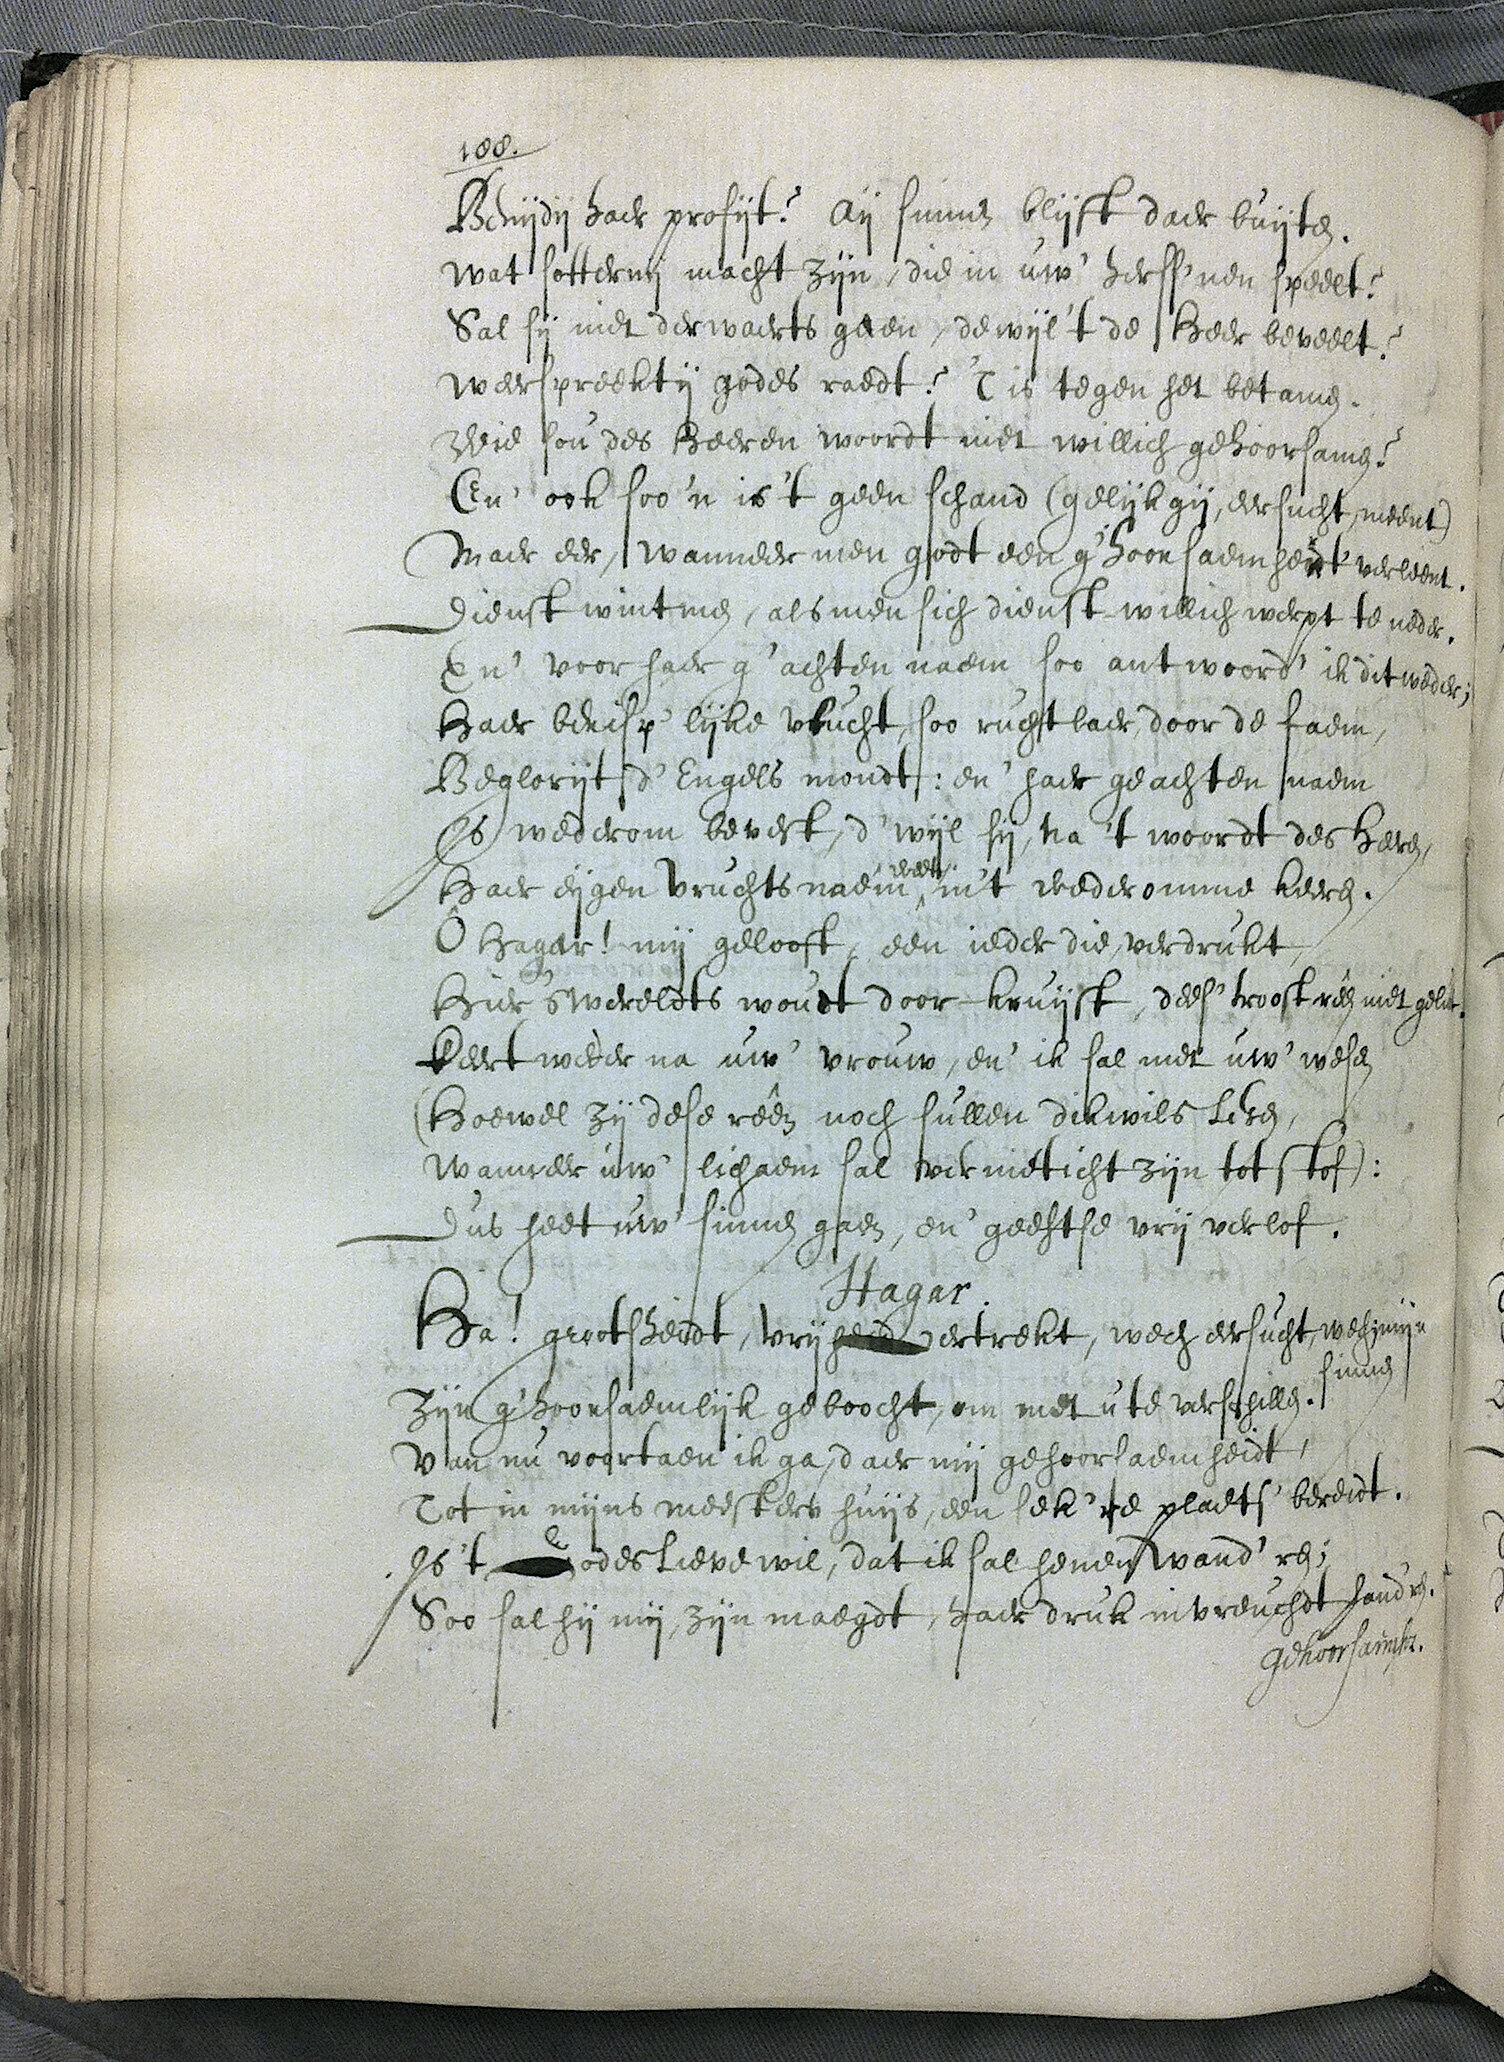 188.
haer profijt? Aij sinnen blijft daer buijten.
Wat sotternij macht zijn, die in uw' herss'nen speelt?
Sal sij niet derwaerts gaen, dewijl 't de Heer beveelt?
Weerspreekt ij godes raedt? 'T is tegen het betamen.
Wie sou des Heeren woordt niet willich gehoorsamen?
En' ook soo 'n is 't geen schand (gelijk gij, eersucht, meent)
Maer eer, wanneer men godt een g'hoorsaemheidt verleent.
Dienst wint men, als men sich dienst-willich werpt te neder.
En' voor haer g'achten naem soo antwoord' ik dit weder;
Haer berisp'lijke vlucht, soo ruchtbaer, door de faem,
Beglorijt d' Engels mondt: en' haer geachten naem
Is wederom bevest, d'wijl sij, na 't woordt des Heeren,
Haer eijgen vruchts naem weet, in 't wederomme keeren.
Ô Hagar! mij gelooft, een ieder die, verdrukt,
Hier 's werelts woudt door-kruijst, dees' troost-reên niet gelukt.
Keert weder na uw' vrouw, en' ik sal met uw' wesen
(Hoewel zij dese reên noch sullen dikwils lesen,
Wanneer uw' lichaem sal vernieticht zijn tot stof):
Dus heet uw' sinnen gaen, en' geeftse vrij verlof.
Hagar.
Ha! grootsheidt, vrijheid vertrekt, wech eersucht, wech; mijn
sinnen
Zijn g'hoorsaemlijk geboocht, om met u te verschillen.
Van nu voortaen ik ga, daer mij gehoorsaemheidt,
Tot in mijns meesters huijs, een sek're plaets' bereidt.
Is 't Godes lieve wil, dat ik sal henen wand'ren;
Soo sal hij mij, zijn maegdt, haer druk in vreuchdt